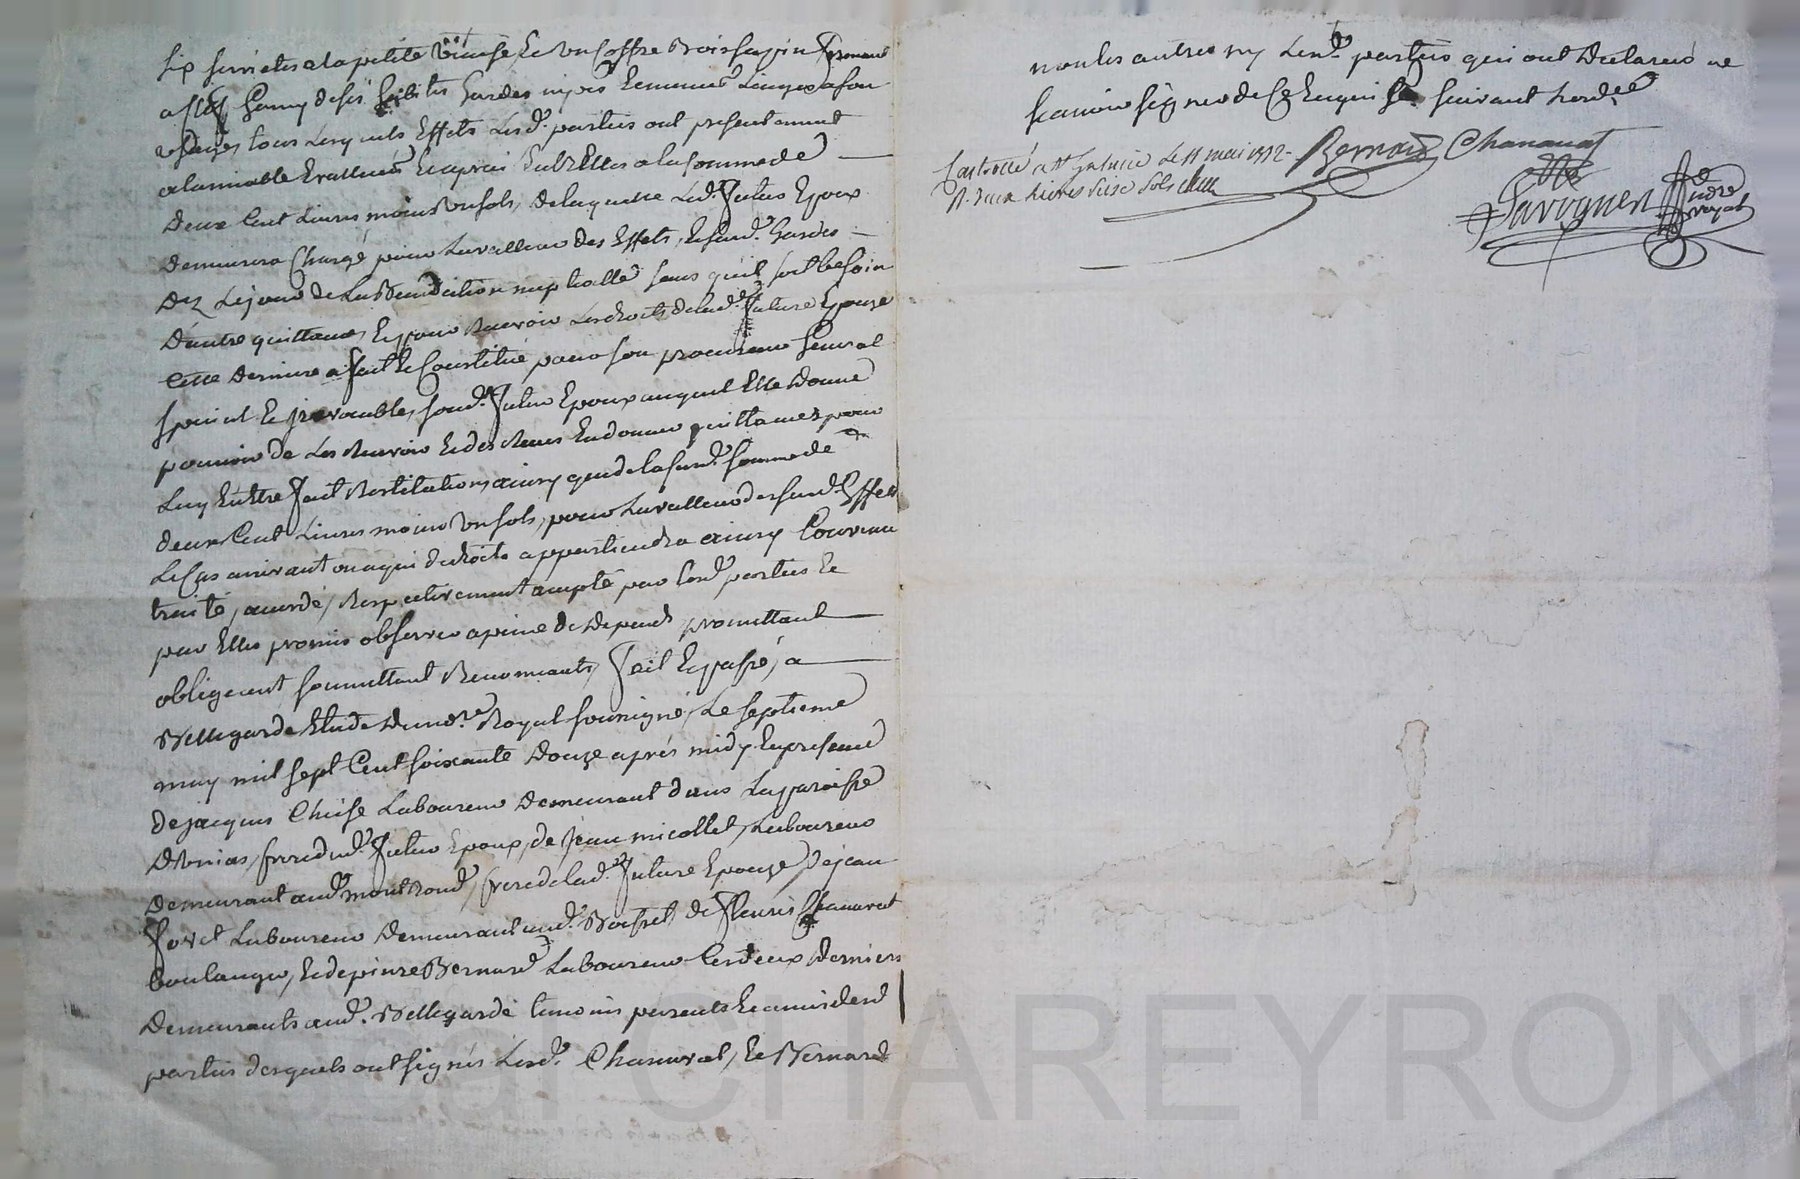 six serviettes a la petite Venise, Et un coffre Bois sapin fermant
a clef Garny desd habits hardes nippes Et menus Linges a son
usages tous Lesquels Effets Lesd. parties ont presentement
a lamiable Evallués Et apretié Entr'Elles a la somme de
deux Cent Livres moins un sols, de laquelle Led. futur Epoux
demeurera Chargé pour la valleur des Effets, Et susd. hardes
dez Le jour de La Benediction nuptialle sans qu'il soit besoin
d'autre quittance, Et pour Recevoir Les droits de lad. future Epouze
Cette derniere a fait Et Constitué pour son procureur General
special Et irrevocable, sond. futur Epoux auquel Elle donne
pouvoir de Les Recevoir Et des Reçus En donner quittances, pour
Luy Entre fait Restitution, ainsy que de la susd. somme de
deux Cent Livres moins un sols, pour La valleur des susd. Effets
Le Cas arrivant ou a qui de droits appartiendra ainsy Convenu
traité, accordé, Respectivement accepté par Lesd. parties Et
par Elles promis observer a peine de depends, promettant
obligeant, soumettant Renonceants, fait Et passé, a
Bellegarde Etude du no.re Royal soussigné, Le septieme
may mil sept Cent soixante douze après midy En presence
de jacques Chieze Laboureur demeurant dans La paroisse
frere dud. futur Epoux, de jean micollet, Laboureur
demeurant aud. montrond, frere de lad. future Epouze, de jean
foret Laboureur demeurant aud. de fleuris Chanavat
boulanger, Et de pierre Bernard Laboureur Ces deux derniers
demeurants aud. Bellegarde temoins parents Et amis desd
parties desquels ont signés Lesd. Chanavat, Et Bernard
non les autres ny Lesd. parties qui ont declarés ne
scavoir signer de Ce Enquis Et suivant Lord.ce
Controllé a St Galmier Le 11 mai 1772. Bernard Chanavat
R. deux Livres seize sols
no.re
royal
CHAREYRON